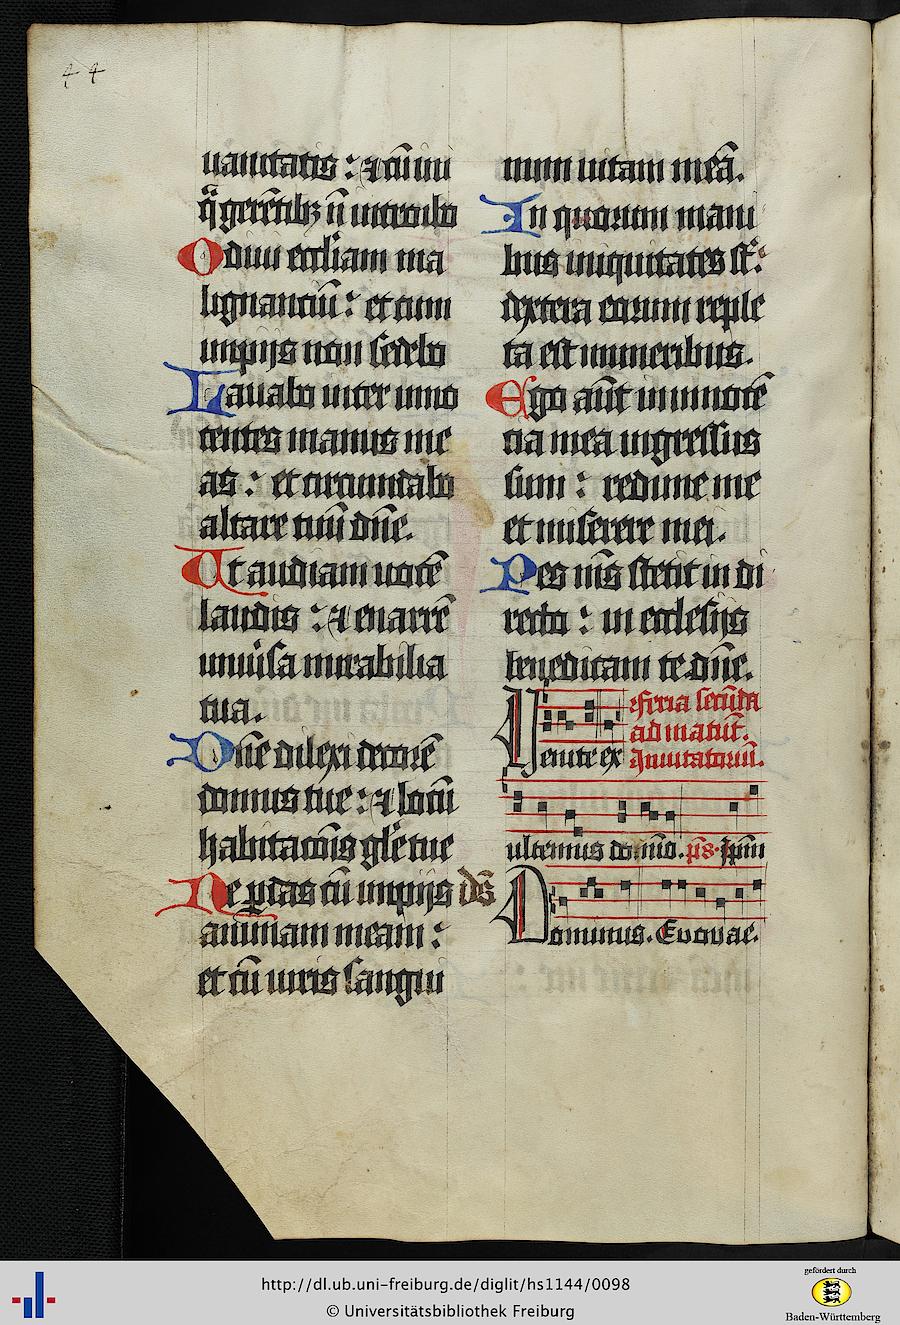 44
uanitatis : ⁊ cū ini
q̄ gerētibȝ nō introibo
Odiui eccl'iam ma
lignanciū : et cum
impijs non sedebo
Lauabo inter inno
centes manus me
as : et circumdabo
altare tuū dn̄e.
Ut audiam uocē
laudis : ⁊ enarrē
uniu'sa mirabilia
tua.
Dn̄e dilexi decorē
domus tue : ⁊ locū
habitacōis gl'e tue
Ne ꝑdas cū impijs ds̄
animam meam :
et cū uiris sangui
num uitam meā.
In quorum mani
bus iniquitates st̄ :
dextera eorum reple
ta est muneribus.
Ego aūt in innocē
cia mea ingressus
sum : redime me
et miserere mei.
Pes m̄s stetit in di
recto : in ecclesijs
benedicam te dn̄e.
feria secūda
ad matut̄.
Uenite ex Inuitatoriū.
ultemus domīo. p̄s. Ip̄m
Dominus. Euouae.
http://dl.ub.uni-freiburg.de/diglit/hs1144/0098
© Universitätsbibliothek Freiburg
gefördert durch
Baden-Württemberg